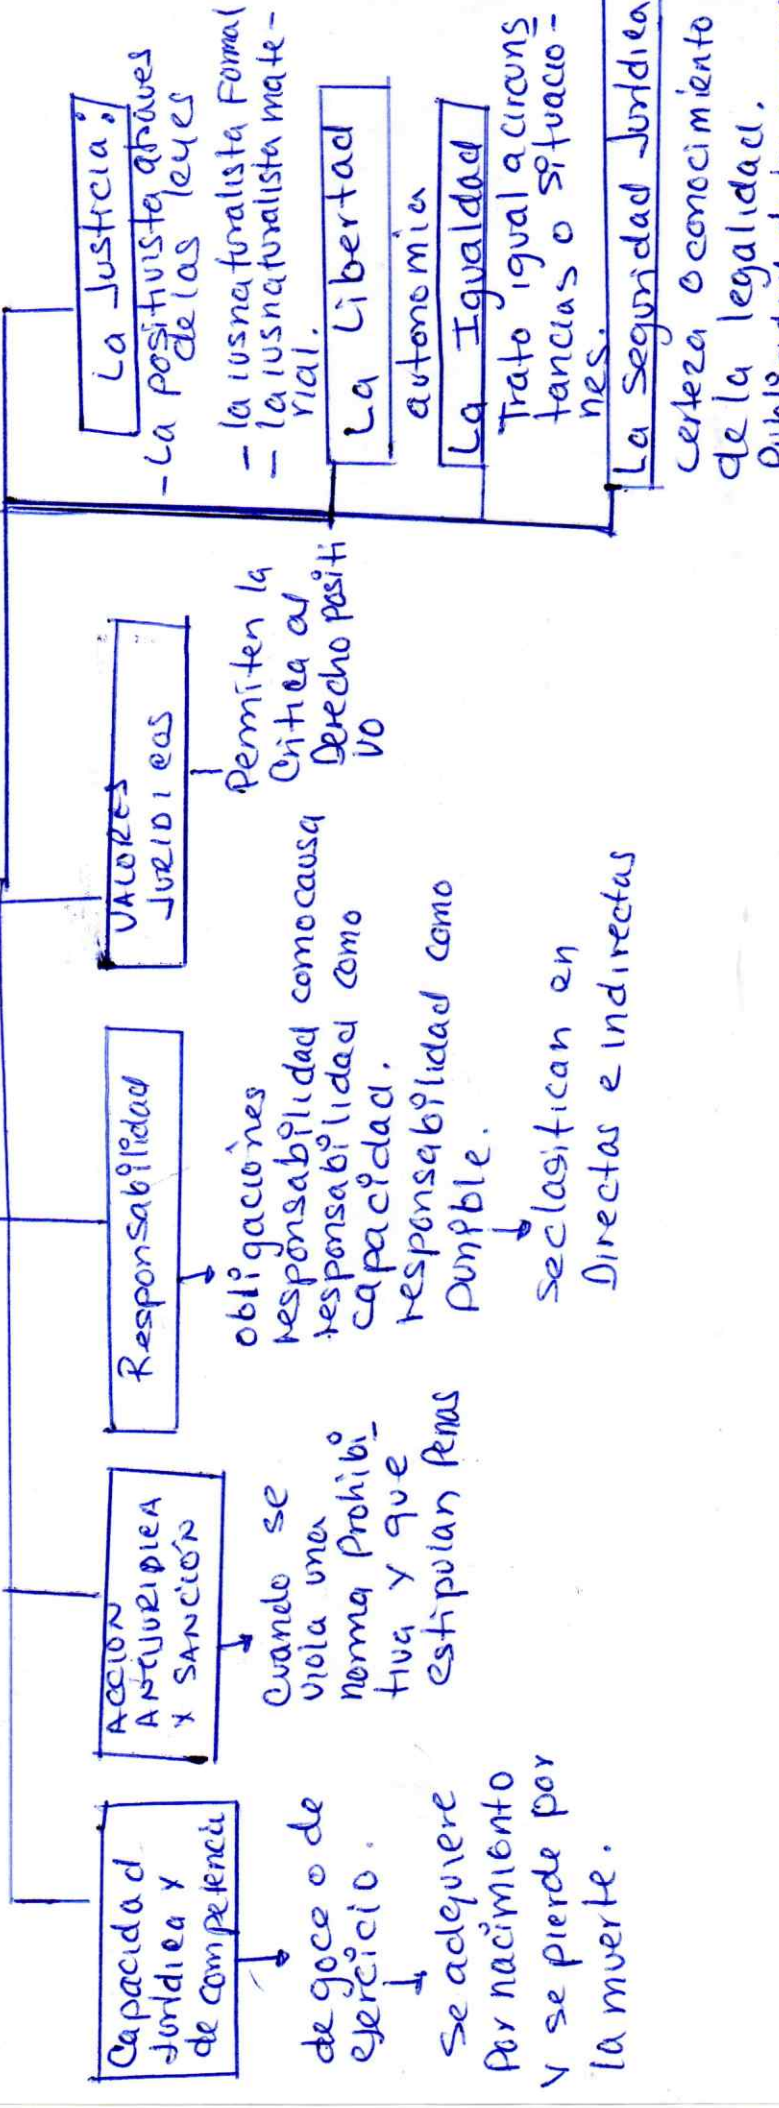 Capacidad
Jurídica y
de competencia
de goce o de
ejercicio.
Se adquiere
Por nacimiento
y se pierde por
la muerte.
ACCION
ANTIJURIDICA
Y SANCIÓN
Cuando se
viola una
norma Prohibi_
tiva y que
estipulan Penas
Responsabilidad
obligaciones
responsabilidad como causa
responsabilidad como
capacidad.
responsabilidad como
punible.
Se clasifican en
Directas e indirectas
VALORES
JURIDICOS
Permiten la
Critica al
Derecho positi
vo
La Justicia:
- La positivista através
de las leyes
= la iusnaturalista Formal
= la iusnaturalista mate-
rial.
La Libertad
autonomia
La Igualdad
Trato igual a circuns
tancias o situacio-
nes.
La Seguridad Jurídica
certeza o conocimiento
de la legalidad.